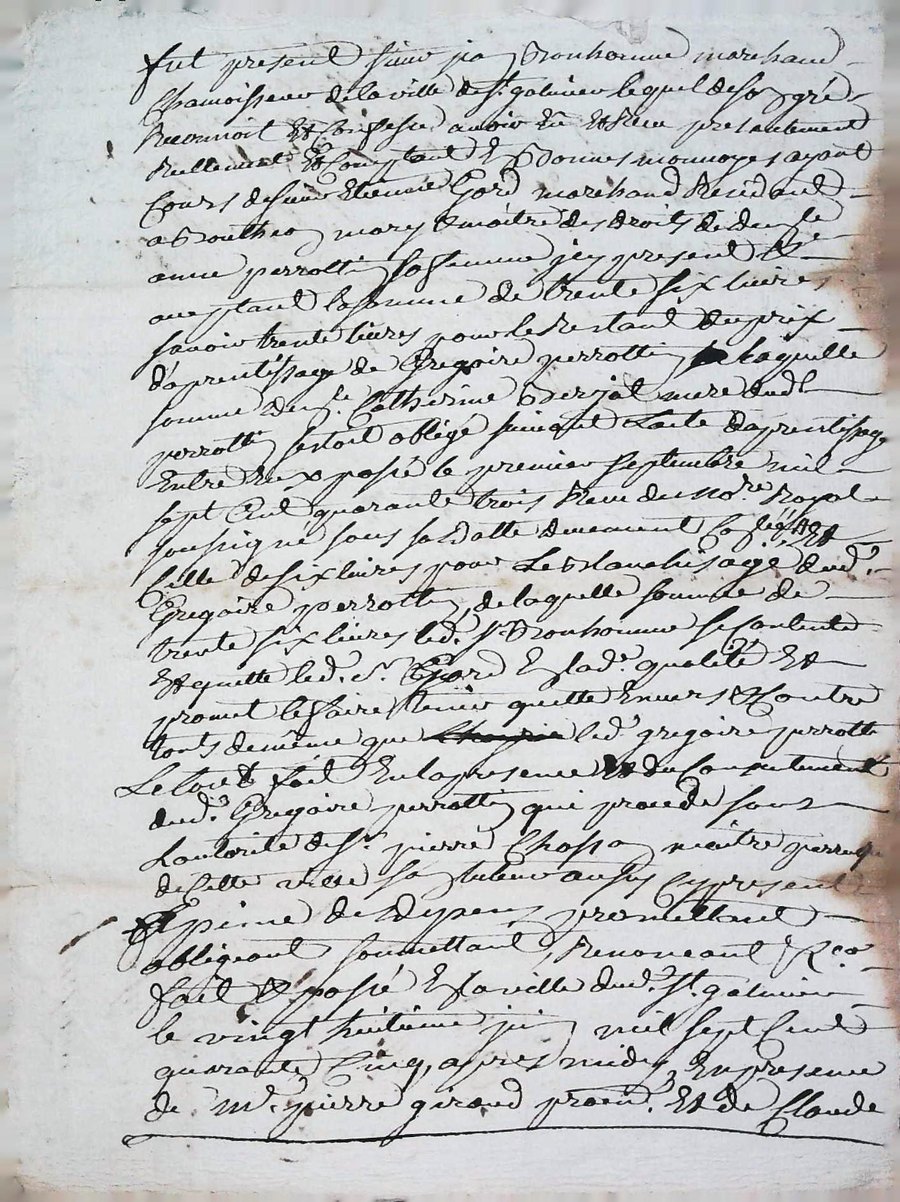 fut present sieur jean Bonhomme marchand
Chamoisseur de la ville de St galmier lequel de son gré
Reconnoit Et Confesse avoir Eu Et Receu presentement
Reellement Et Comptant En Bonnes monnoyes ayant
Cours de sieur Etienne Gord marchand Residant
a Boutheon mary & maitre des droits de
anne perrottin sa femme jcy present &
acceptant la somme de trente six livres
savoir trente livres pour le Restant du prix
d'aprentissage de Gregoire perrottin laquelle
somme Catherine mere dud.
perrottin sestoit obligé suivant Lacte daprentissage
Entre Eux passé le premier septembre mil
sept Cent quarante trois Receu du nore Royal
soussigné sous sa datte duement Et
Celle de six livres pour Le Blanchisage dud.
Gregoire perrottin, de laquelle somme de
trente six livres led. sr Bonhomme se Contente
Et quitte led. sr Gord En lad. qualité Et
promet le faire tenir quitte Envers & Contre
tous de même que led. gregoire perrottin
Le tout fait En la presence & du Consentement
dud. Gregoire perrottin qui procede sous
Lautorité de sr pierre maitre perruquier
de Cette ville son tuteur aussy Cy present
Et peine de depens promettant
obligeant soumettant Renonceant &ca.
fait & passé En la ville dud. St. galmier
le vingt huitieme juin mil sept Cent
quarante Cinq, apres midy, En presence
de Mr. pierre giraud Et de Claude